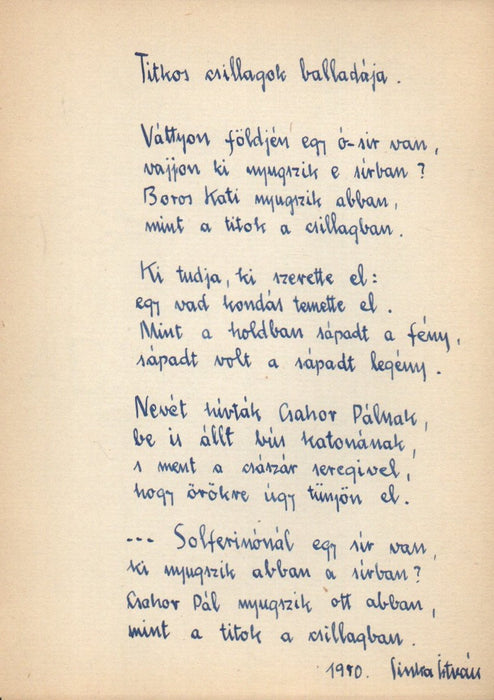 Titkos csillagok balladája.
Váttyon földjén egy ó-sir van,
vajjon ki nyugszik e sírban?
Boros Kati nyugszik abban,
mint a titok a csillagban.
Ki tudja, ki szerette el:
egy vad kondás temette el.
Mint a holdban sápadt a fény,
sápadt volt a sápadt legény.
Nevét hívták Csahor Pálnak,
be is állt bús katonának,
s ment a császár seregivel,
hogy örökre úgy tünjön el.
--- Solferinónál egy sír van,
ki nyugszik abban a sírban?
Csahor Pál nyugszik ott abban,
mint a titok a csillagban.
1950. Sinka István